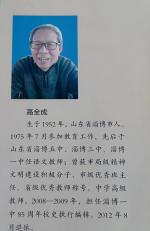 高全成
生于1952年，山东省淄博市人。
1975年7月参加教育工作，先后于
山东省淄博五中、淄博三中、淄博
一中任语文教师；曾获市局级精神
文明建设积极分子、市级优秀班主
任、省级优秀教师称号，中学高级
教师。2008—2009年，担任淄博一
中85周年校史执行编辑。2012年8
月退休。